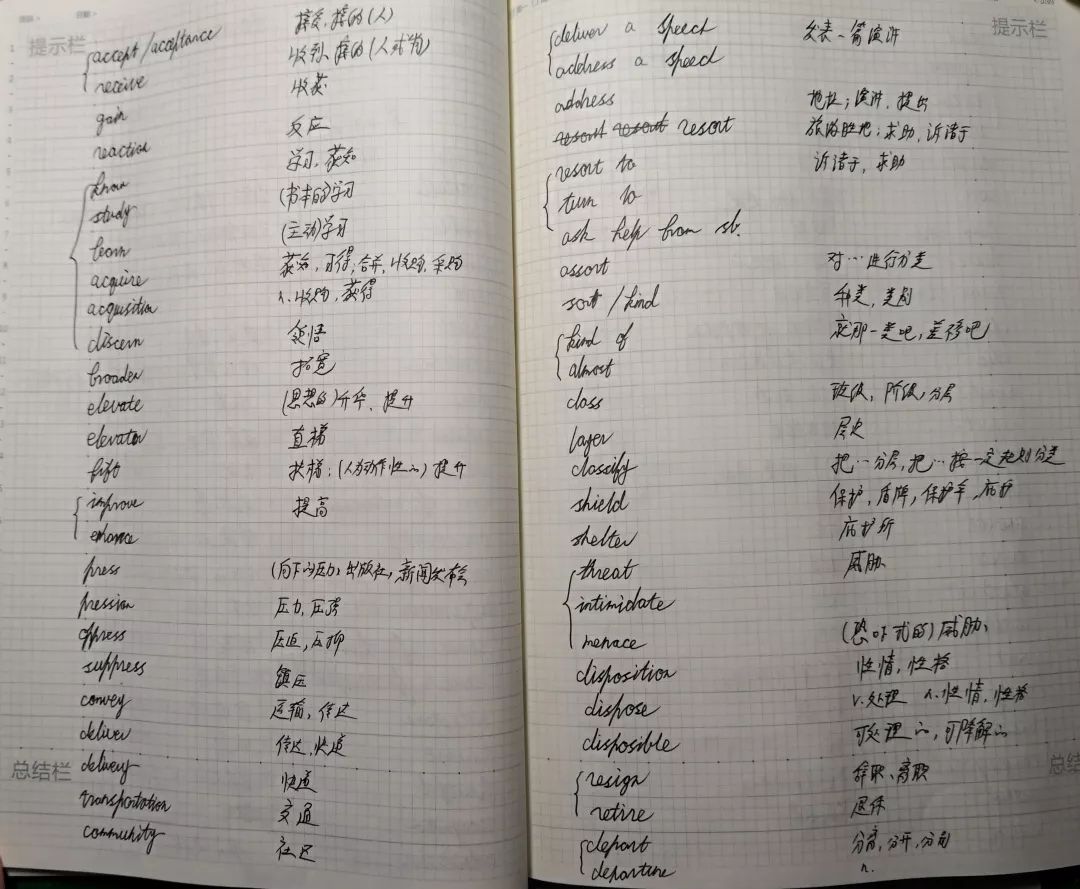 提示栏
accept/acceptance 接受,接的(人)
receive 收到,接的(人或物)
gain 收获
reaction 反应
know 学习,获知
study (书本的)学习
learn (主动)学习
acquire 获知,习得,合并,收购,采购
acquisition n.收购,获得
discern 领悟
broaden 拓宽
elevate (思想的)升华、提升
elevator 直梯
扶梯;(人为动作性的)提升
improve 提高
enhance
press (向下的)压力,出版社,新闻发布会
pression 压力,压
oppress 压迫,压抑
suppress 镇压
convey 运输,传达
deliver 传达,快递
delivery 快递
transportation 交通
community 社区
总结栏
提示栏
deliver a speech 发表一篇演讲
address a speed
address 地址;演讲,提出
resort resort resort 旅游胜地;求助,诉诸于
resort to 诉诸于,求助
turn to
ask help from sb.
assort 对…进行分类
sort/kind 种类,类别
kind of 就那一类吧,差不多吧
almost
class 班级,阶级,分层
layer 层次
classify 把…分层,把…按一定规划分类
shield 保护,盾牌,保护伞,庇护
shelter 庇护所
threat 威胁
intimidate
menace (恐吓式的)威胁
disposition 性情,性格
dispose v.处理 n.性情,性格
disposible 可处理的,可降解的
resign 辞职、离职
retire 退休
depart 分离,分开,分别
departure n.
总结